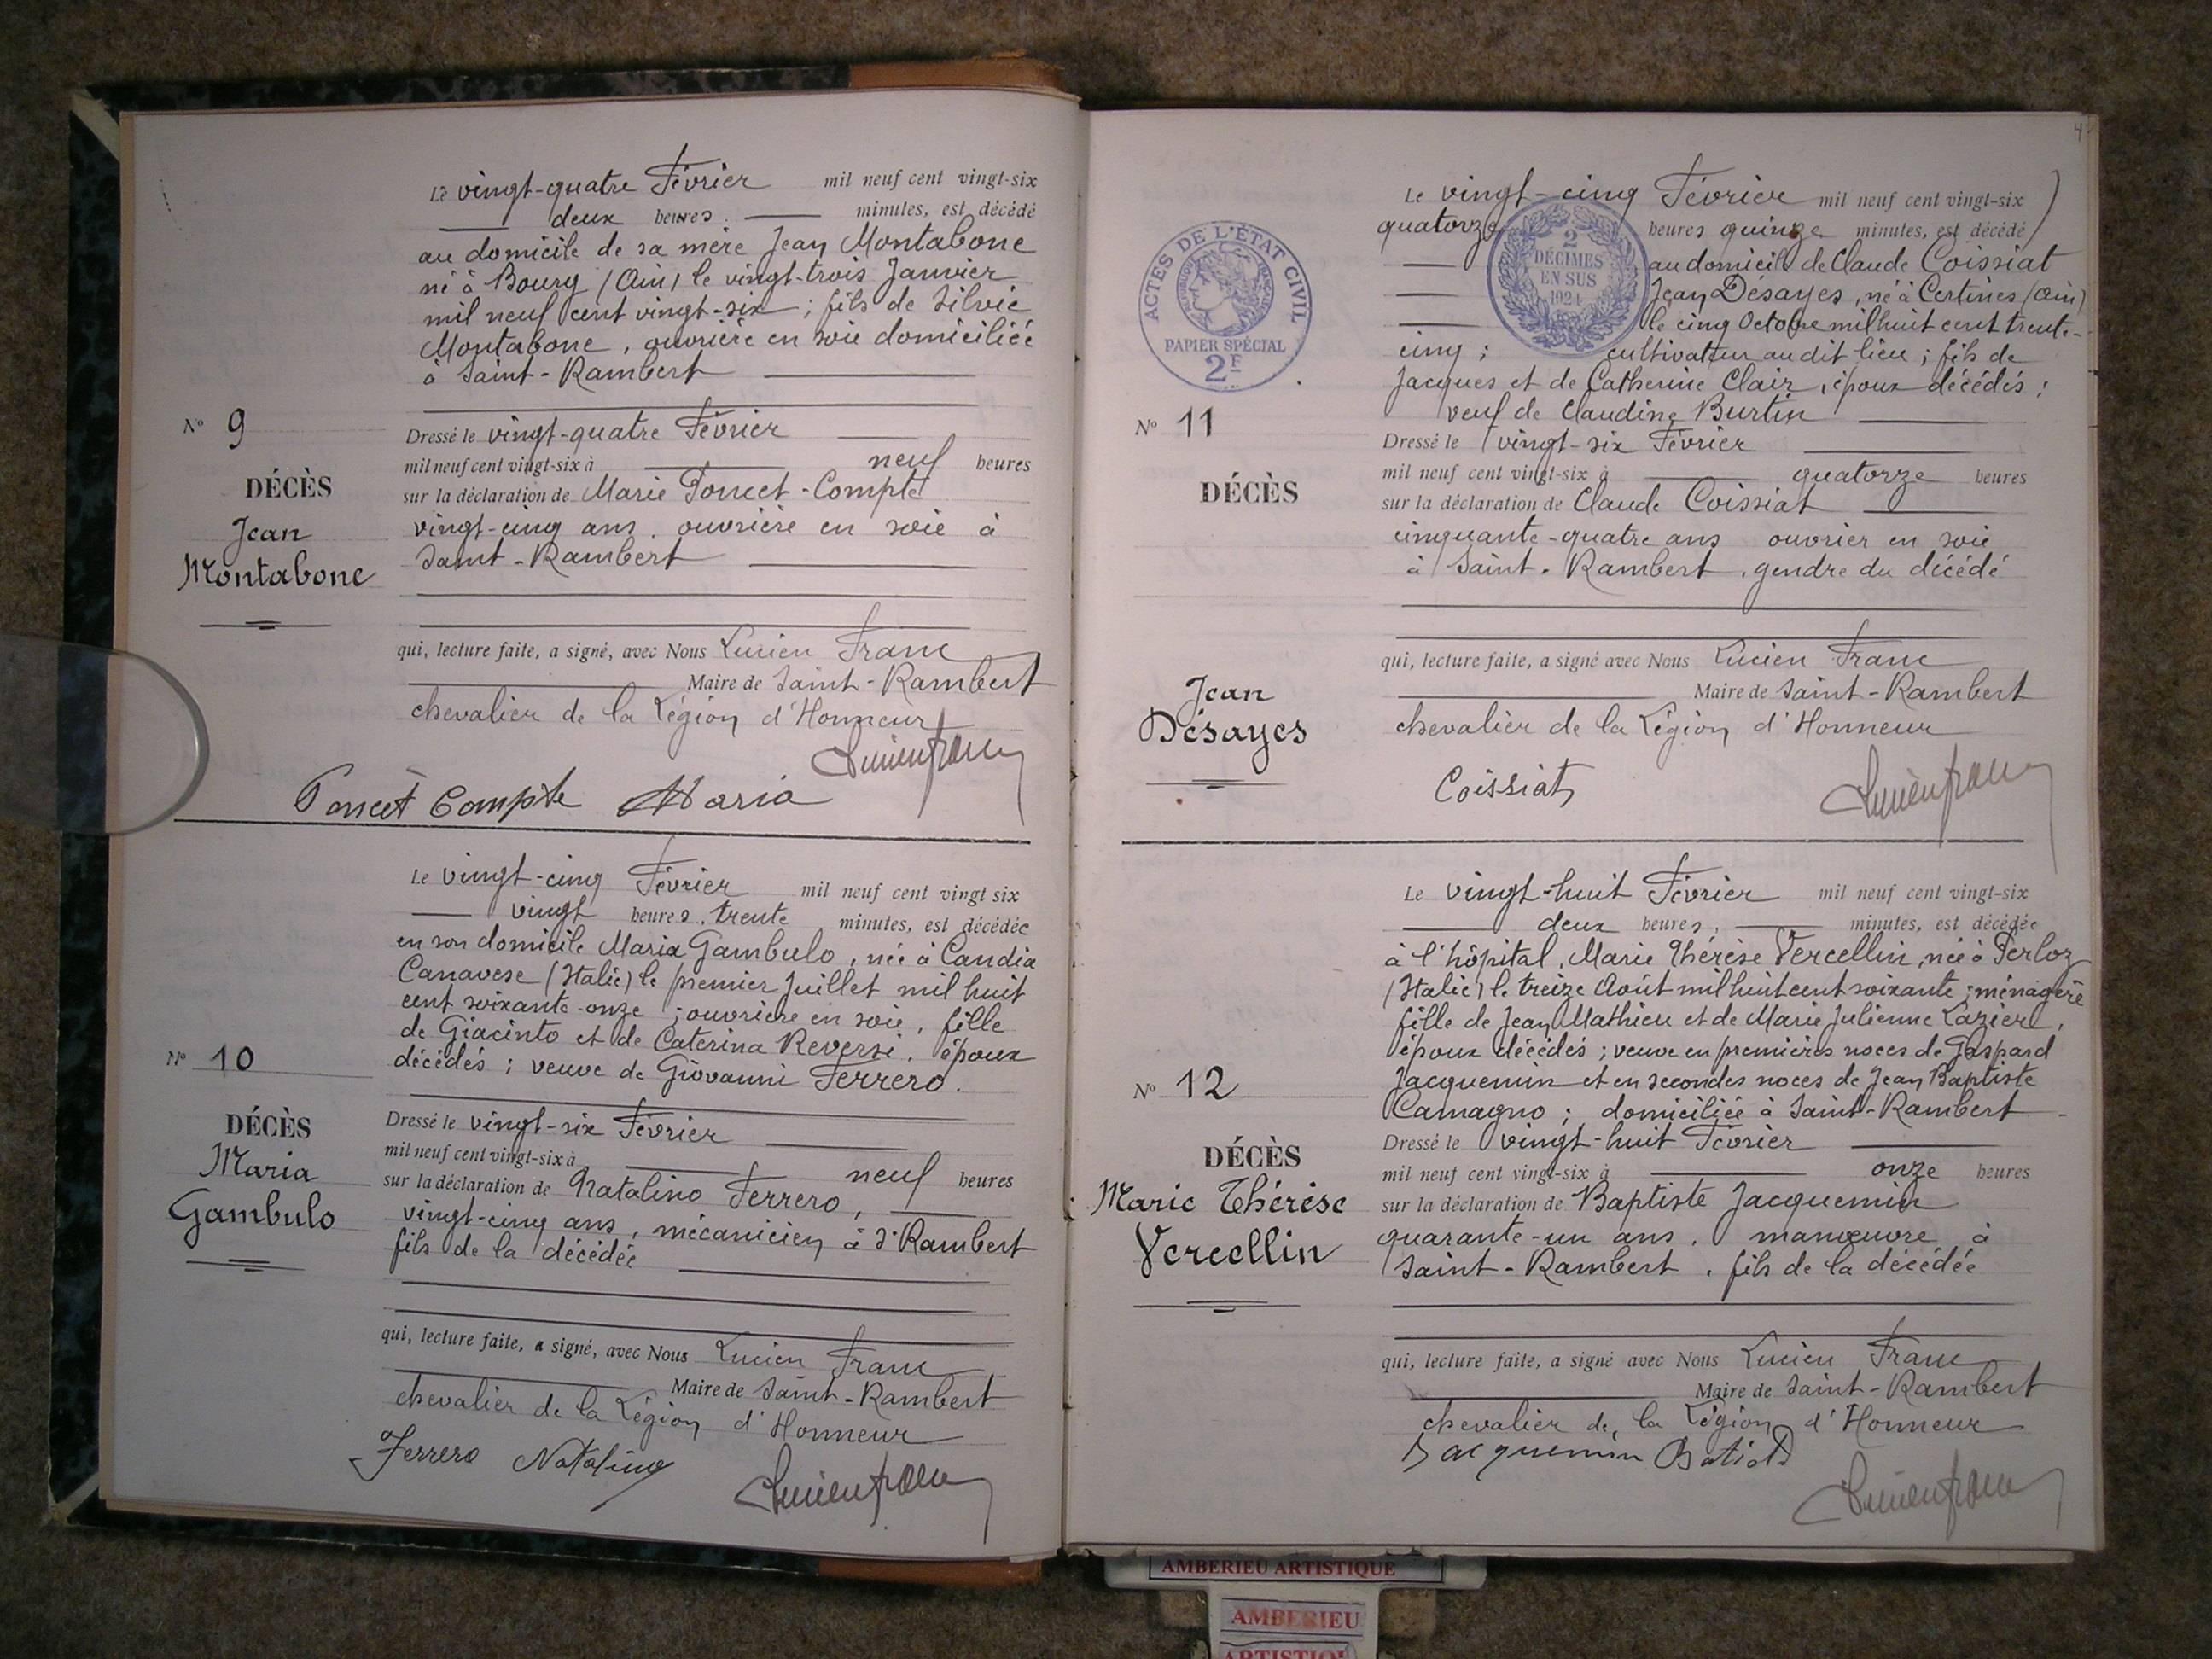 Le vingt-quatre Février mil neuf cent vingt-six
deux heures. minutes, est décédé
au domicile de sa mère Jean Montabone
né à Bourg (Ain) le vingt-trois Janvier
mil neuf cent vingt-six ; fils de Silvie
Montabone, ouvrière en soie domiciliée
à Saint-Rambert
N° 9
Dressé le vingt-quatre Février
mil neuf cent vingt-six à neuf heures
DÉCÈS
sur la déclaration de Marie Poncet-Compte
Jean
vingt-cinq ans, ouvrière en soie à
Montabone
Saint-Rambert
qui, lecture faite, a signé, avec Nous Lucien Franc
Maire de Saint-Rambert
chevalier de la Légion d'Honneur
Lucien franc
Poncet Compte Maria
Le vingt-cinq Février mil neuf cent vingt six
vingt heures. trente minutes, est décédée
en son domicile Maria Gambulo, née à Candia
Canavese (Italie) le premier Juillet mil huit
cent soixante-onze ; ouvrière en soie, fille
de Giacinto et de Caterina Reversi, époux
décédés ; veuve de Giovanni Ferrero.
N° 10
DÉCÈS
Dressé le vingt-six Février
mil neuf cent vingt-six à neuf heures
Maria
sur la déclaration de Natalino Ferrero,
Gambulo
vingt-cinq ans, mécanicien à St Rambert
fils de la décédée
qui, lecture faite, a signé, avec Nous Lucien Franc
Maire de Saint-Rambert
chevalier de la Légion d'Honneur
Ferrero Natalino
Lucien franc
4
Le vingt-cinq Février mil neuf cent vingt-six
quatorze heures quinze minutes, est décédé
au domicile de Claude Coissiat
Jean Désayes, né à Certines (Ain)
le cinq Octobre mil huit cent trente-
cinq ; cultivateur au dit lieu ; fils de
Jacques et de Catherine Clair, époux décédés ;
veuf de Claudine Burtin
ACTES DE L'ÉTAT CIVIL
RÉPUBLIQUE FRANÇAISE
PAPIER SPÉCIAL
2F
2
DÉCIMES
EN SUS
1924
N° 11
Dressé le vingt-six Février
mil neuf cent vingt-six à quatorze heures
DÉCÈS
sur la déclaration de Claude Coissiat
cinquante-quatre ans ouvrier en soie
à Saint-Rambert, gendre du décédé
qui, lecture faite, a signé avec Nous Lucien Franc
Jean
Maire de Saint-Rambert
Désayes
chevalier de la Légion d'Honneur
Coissiat
Lucien franc
Le vingt-huit Février mil neuf cent vingt-six
deux heures, minutes, est décédée
à l'hôpital, Marie Thérèse Vercellin, née à Perloz
(Italie) le treize Août mil huit cent soixante ; ménagère
fille de Jean Mathieu et de Marie Julienne Lazier,
époux décédés ; veuve en premières noces de Gaspard
Jacquemin et en secondes noces de Jean Baptiste
Camagno ; domiciliée à Saint-Rambert
N° 12
Dressé le vingt-huit Février
DÉCÈS
mil neuf cent vingt-six à onze heures
Marie Thérèse
sur la déclaration de Baptiste Jacquemin
Vercellin
quarante-un ans, manœuvre à
Saint-Rambert, fils de la décédée
qui, lecture faite, a signé avec Nous Lucien Franc
Maire de Saint-Rambert
chevalier de la Légion d'Honneur
Jacquemin
Lucien franc
AMBERIEU ARTISTIQUE
AMBERIEU
ARTISTIQUE